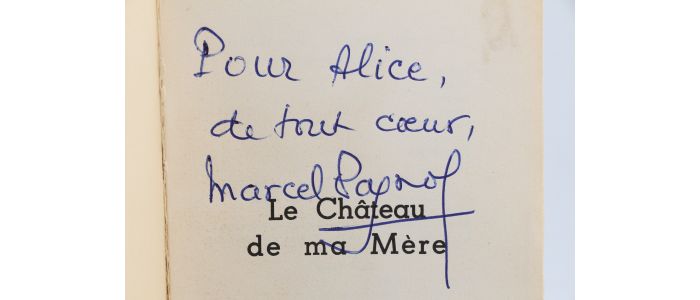 Pour Alice,
de tout cœur,
Marcel Pagnol
Le Château
de ma Mère